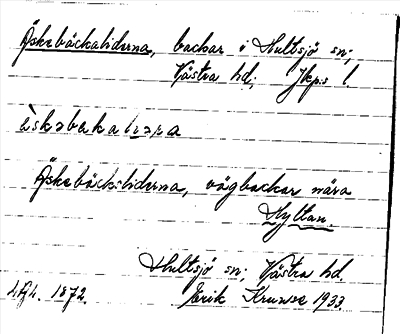 Äskebäckaliderna, backar i Hultsjö sn;
Västra hd; Jkps l.
èskəbekaliəɳa
Äskebäcksliderna, vägbackar nära
Hyltan.
Hultsjö sn; Västra hd.
1872. Erik Kruuse 1933.